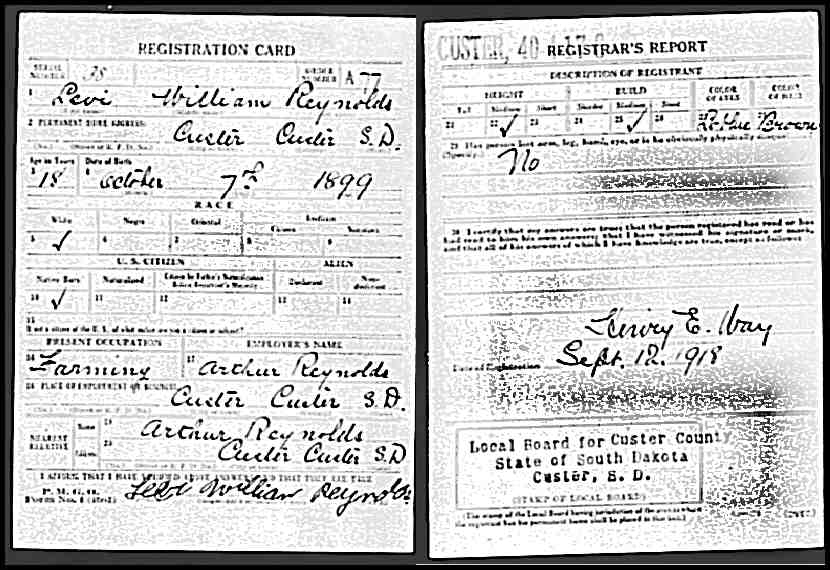 REGISTRATION CARD
SERIAL NUMBER 38 ORDER NUMBER A 77
1 Levi William Reynolds
2 PERMANENT HOME ADDRESS:
Custer Custer S.D.
Age in Years Date of Birth
3 18 4 October 7th 1899
RACE
White Negro Oriental Indian
Citizen
5 ✓ 6 7 8 9
U. S. CITIZEN ALIEN
Native Born Naturalized Citizen by Father's Naturalization Before Registrant's Majority Declarant Non-declarant
10 ✓ 11 12 13 14
15
If not a citizen of the U. S., of what nation are you a citizen or subject?
PRESENT OCCUPATION EMPLOYER'S NAME
16 Farming 17 Arthur Reynolds
18 PLACE OF EMPLOYMENT OR BUSINESS:
Custer Custer S.D.
NEAREST RELATIVE Name 19 Arthur Reynolds
Address 20 Custer Custer S.D
I AFFIRM THAT I HAVE VERIFIED ABOVE ANSWERS AND THAT THEY ARE TRUE
P. M. G. O.
Form No. 1 Levi William Reynolds
CUSTER, 40
REGISTRAR'S REPORT
DESCRIPTION OF REGISTRANT
HEIGHT BUILD COLOR OF EYES COLOR OF HAIR
Tall Medium Short Slender Medium Stout
21 22 ✓ 23 24 25 ✓ 26 27 Blue Brown
29 Has person lost arm, leg, hand, eye, or is he obviously physically disqualified?
(Specify.) No
30 I certify that my answers are true; that the person registered has read or has
had read to him his own answers; that I have witnessed his signature or mark,
and that all of his answers of which I have knowledge are true, except as follows:
Henry E. Way
Date of Registration Sept. 12. 1918
Local Board for Custer County
State of South Dakota
Custer, S. D.
(STAMP OF LOCAL BOARD)
(The stamp of the Local Board having jurisdiction of the area in which
the registrant has his permanent home shall be placed in this box.)